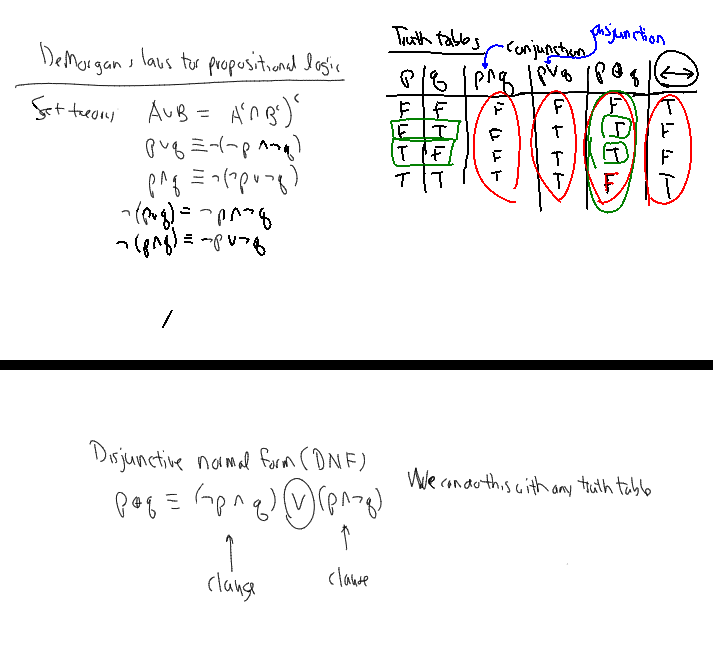 DeMorgan's laws for propositional logic
Set theory A∪B = (A^c ∩ B^c)^c
p∨q ≡ ¬(¬p ∧ ¬q)
p∧q ≡ ¬(¬p ∨ ¬q)
¬(p∨q) ≡ ¬p ∧ ¬q
¬(p∧q) ≡ ¬p ∨ ¬q
Truth tables
conjunction
disjunction
p q p∧q p∨q p⊕q ↔
F F F F F T
F T F T T F
T F F T T F
T T T T F T
Disjunctive normal form (DNF)
p⊕q ≡ (¬p ∧ q) ∨ (p∧¬q)
clause clause
We can do this with any truth table